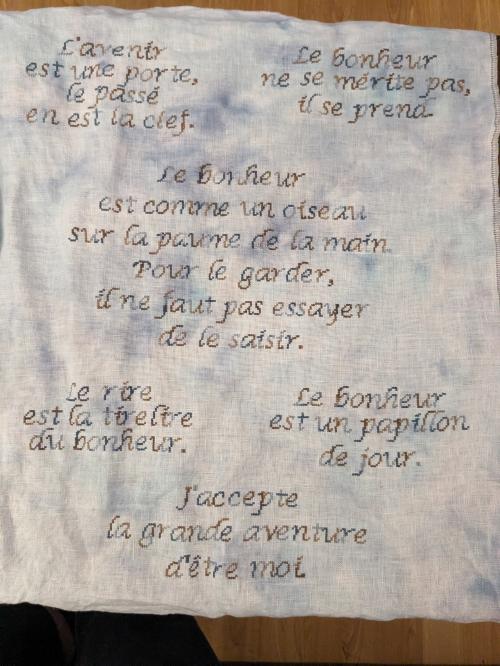 L'avenir
est une porte,
le passé
en est la clef.
Le bonheur
ne se mérite pas,
il se prend.
Le bonheur
est comme un oiseau
sur la paume de la main.
Pour le garder,
il ne faut pas essayer
de le saisir.
Le rire
est la tirelire
du bonheur.
Le bonheur
est un papillon
de jour.
J'accepte
la grande aventure
d'être moi.